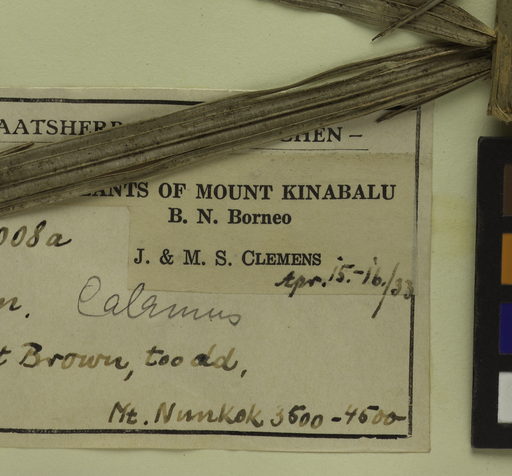 AATSHERB CHEN –
PLANTS OF MOUNT KINABALU
B. N. Borneo
J. & M. S. CLEMENS
Apr. 15.-16./33
008a
n. Calamus
t Brown, too dd,
Mt. Nunkok 3500-4500